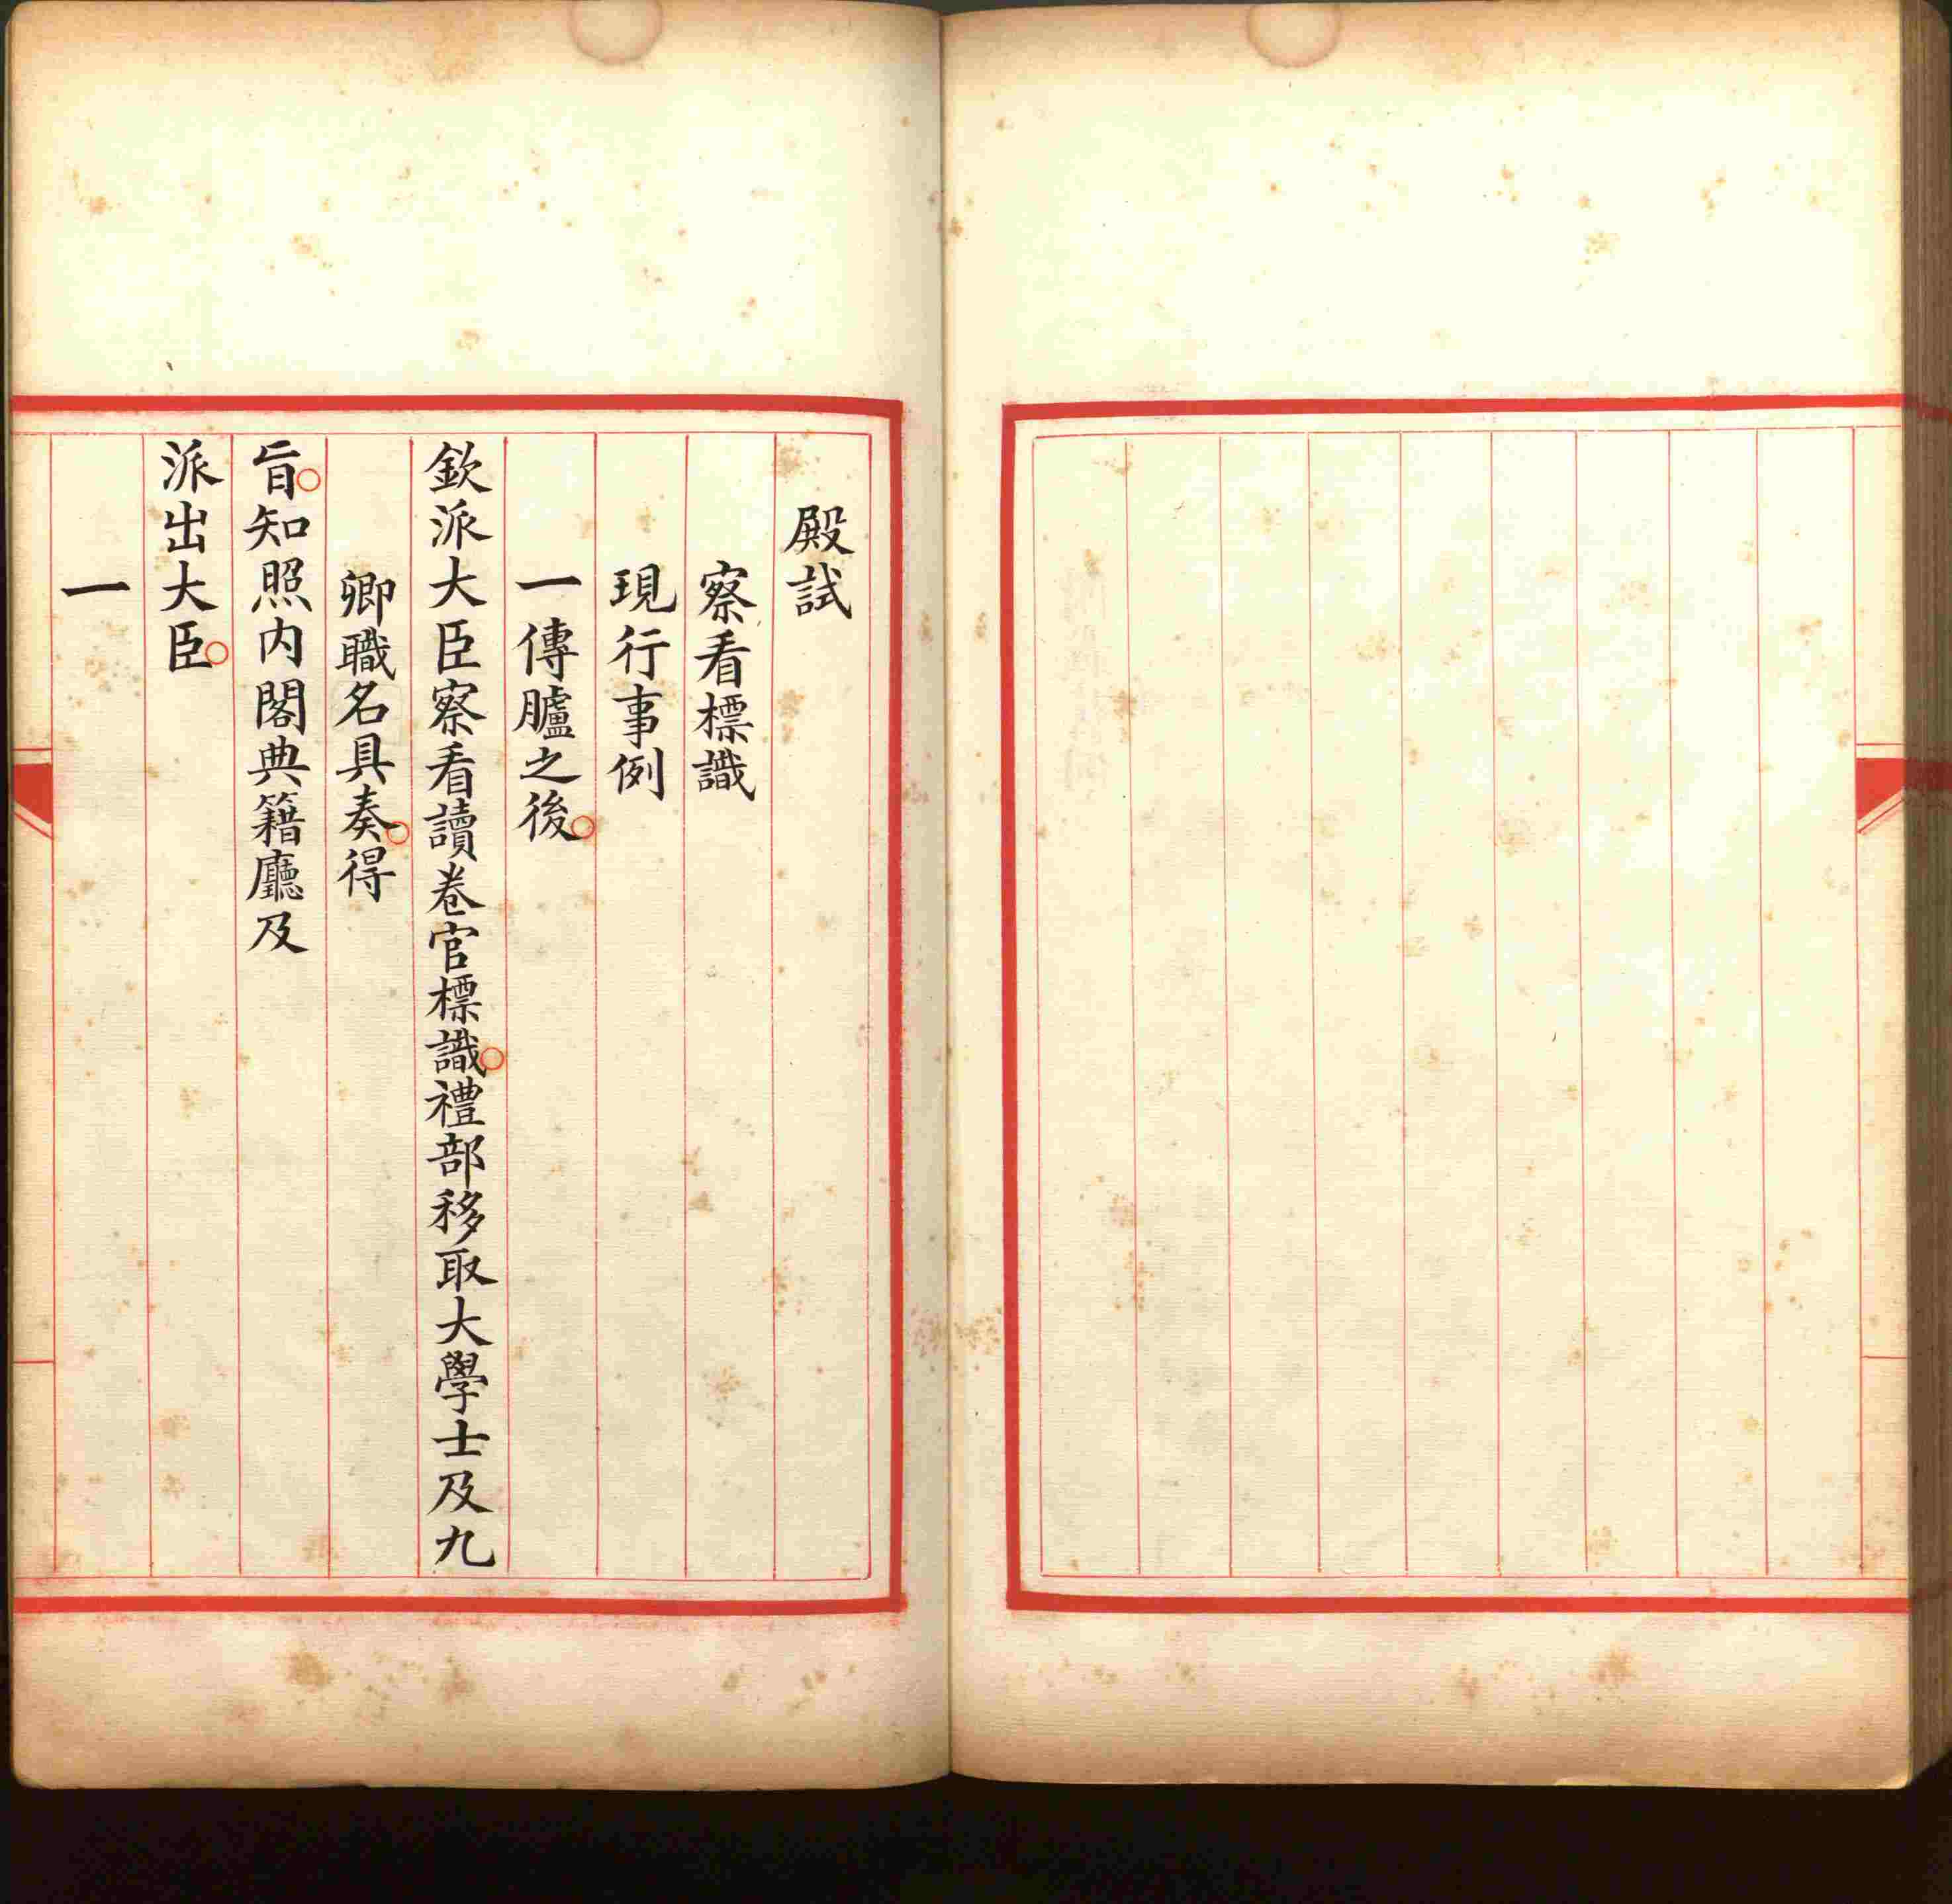 殿試
察看標識
現行事例
一傳臚之後
欽派大臣察看讀卷官標識禮部移取大學士及九
卿職名具奏得
旨知照内閣典籍廳及
派出大臣
一